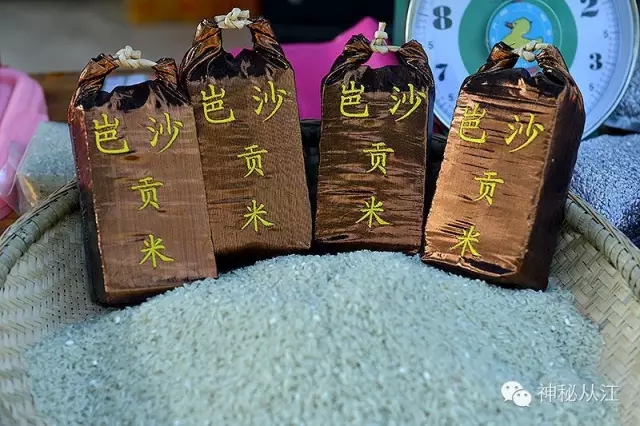 岜沙
贡
米
岜沙
贡
米
岜沙
贡
米
岜沙
贡
米
8
7
2
3
神秘从江